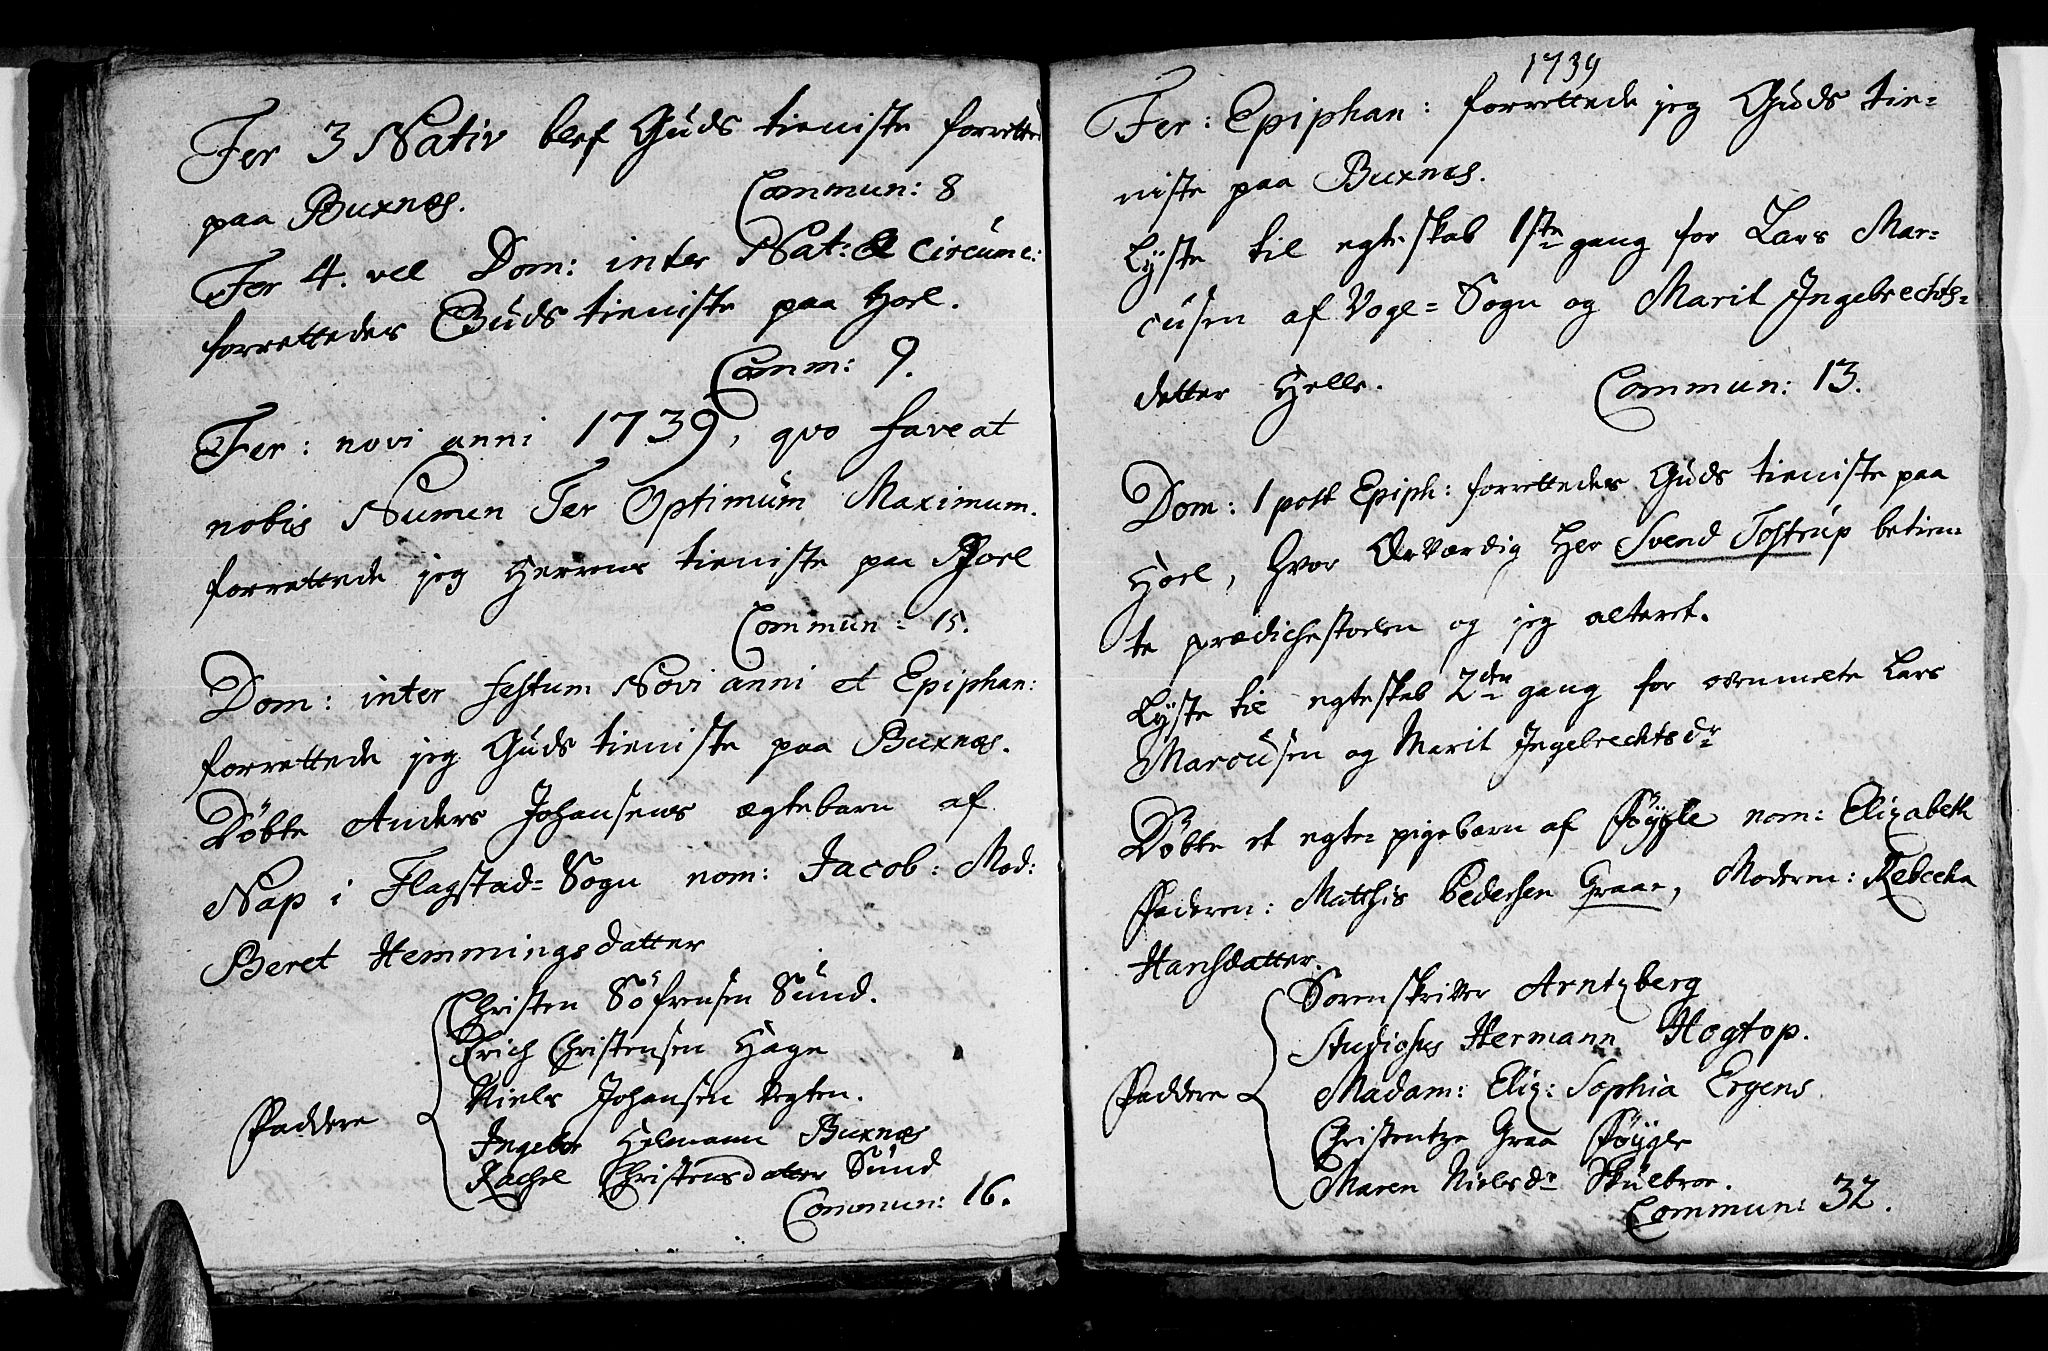 Fer 3 Nativ blef Guds tieniste forretted
paa Buxnæs. Commun: 8
Fer 4. vel Dom: inter Nat: & Circumc:
forrettedes Guds tieniste paa Hoel.
Comm: 9.
Fer: novi anni 1739, qvo faveat
nobis Numen Ter Optimum Maximum.
forrettede jeg Herrens tieniste paa Hoel
Commun: 15.
Dom: inter festum Novi anni et Epiphan:
forrettede jeg Guds tieniste paa Buxnæs.
Döbte Anders Johansens ægtebarn af
Nap i Flagstad-Sogn nom: Jacob: Mod:
Beret Hemmingsdatter
Christen Söfrensen Sund.
Erich Christensen Hage
Niels Johansen Vegten.
Faddere
Ingebor Helmann Buxnæs
Rachel Christensdatter Sund
Commun: 16.
1739
Fer: Epiphan: forrettede jeg Guds tie-
niste paa Buxnæs.
Lyste til egteskab 1ste gang for Lars Mar-
cusen af Voge-Sogn og Marit Ingebrechts-
detter Helle. Commun: 13.
Dom: 1 post Epiph: forrettedes Guds tieniste paa
Hoel, hvor Ærværdig Her Svend Tostrup betien-
te prædichestoelen og jeg alteret.
Lyste til egteskab 2den gang for ovenmelte Lars
Marcusen og Marit Ingebrechtsdr
Döbte et egte pigebarn af Föygle nom: Elizabeth
Faderen: Matthis Pedersen Graae, Moderen: Rebecka
Hansdatter.
Sorenskriver Arntzberg
Studiosus Hermann Hogtop.
Madam: Eliz: Sophia Ergens.
Faddere
Christentze Graa Föygle
Maren Nielsdr Skulbroe.
Commun: 32.